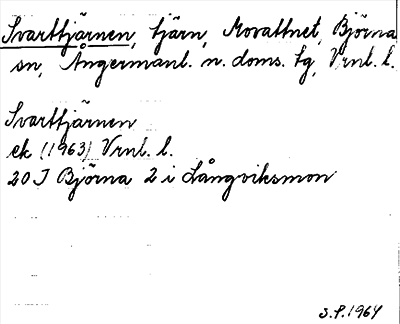 Svarttjärnen, tjärn, Movattnet, Björna
sn, Ångermanl. n. doms. tg, Vrnl. l.
Svarttjärnen
ek (1963) Vrnl. l.
20 J Björna 2 i Långviksmon
S.P. 1964